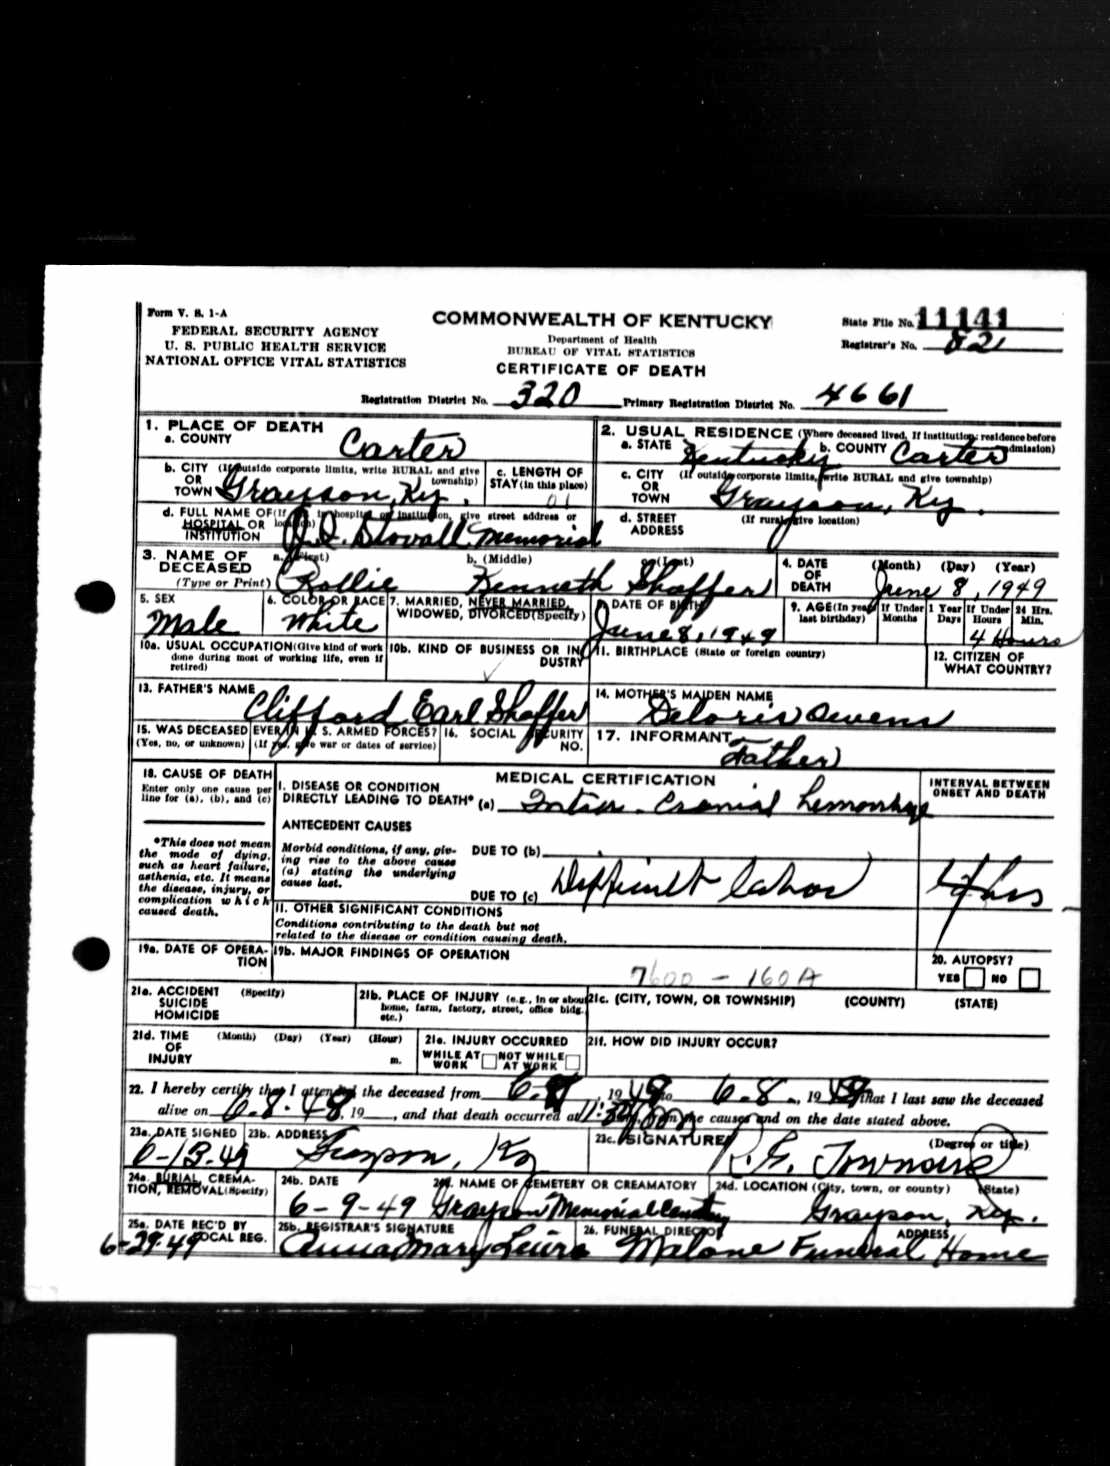 Form V. S. 1-A
FEDERAL SECURITY AGENCY
U. S. PUBLIC HEALTH SERVICE
NATIONAL OFFICE VITAL STATISTICS
COMMONWEALTH OF KENTUCKY
Department of Health
BUREAU OF VITAL STATISTICS
CERTIFICATE OF DEATH
State File No. 11141
Registrar's No. 82
Registration District No. 320 Primary Registration District No. 4661
1. PLACE OF DEATH
a. COUNTY Carter
2. USUAL RESIDENCE (Where deceased lived. If institution: residence before admission)
a. STATE Kentucky b. COUNTY Carter
b. CITY (If outside corporate limits, write RURAL and give township)
OR TOWN Grayson, Ky.
c. LENGTH OF STAY (in this place) 01
c. CITY (If outside corporate limits, write RURAL and give township)
OR TOWN Grayson, Ky.
d. FULL NAME OF (If not in hospital or institution, give street address or location)
HOSPITAL OR INSTITUTION J. Q. Stovall Memorial
d. STREET ADDRESS (If rural, give location)
3. NAME OF DECEASED (Type or Print)
a. (First) b. (Middle) c. (Last)
Rollie Kenneth Shaffer
4. DATE OF DEATH (Month) (Day) (Year)
June 8, 1949
5. SEX Male
6. COLOR OR RACE White
7. MARRIED, NEVER MARRIED, WIDOWED, DIVORCED (Specify)
8. DATE OF BIRTH June 8, 1949
9. AGE (In years last birthday) If Under 1 Year Months Days If Under 24 Hrs. Hours Min.
4 Hours
10a. USUAL OCCUPATION (Give kind of work done during most of working life, even if retired)
10b. KIND OF BUSINESS OR INDUSTRY
11. BIRTHPLACE (State or foreign country)
12. CITIZEN OF WHAT COUNTRY?
13. FATHER'S NAME Clifford Earl Shaffer
14. MOTHER'S MAIDEN NAME Deloris Owens
15. WAS DECEASED EVER IN U. S. ARMED FORCES?
(Yes, no, or unknown) (If yes, give war or dates of service)
16. SOCIAL SECURITY NO.
17. INFORMANT Father
18. CAUSE OF DEATH
Enter only one cause per line for (a), (b), and (c)
*This does not mean the mode of dying, such as heart failure, asthenia, etc. It means the disease, injury, or complication which caused death.
MEDICAL CERTIFICATION
I. DISEASE OR CONDITION
DIRECTLY LEADING TO DEATH* (a) Intra-Cranial hemorrhage
INTERVAL BETWEEN ONSET AND DEATH
ANTECEDENT CAUSES
Morbid conditions, if any, giving rise to the above cause (a) stating the underlying cause last.
DUE TO (b)
DUE TO (c) Difficult labor 4 hrs
II. OTHER SIGNIFICANT CONDITIONS
Conditions contributing to the death but not related to the disease or condition causing death.
19a. DATE OF OPERATION
19b. MAJOR FINDINGS OF OPERATION
7600 - 160A
20. AUTOPSY?
YES NO
21a. ACCIDENT SUICIDE HOMICIDE (Specify)
21b. PLACE OF INJURY (e.g., in or about home, farm, factory, street, office bldg., etc.)
21c. (CITY, TOWN, OR TOWNSHIP) (COUNTY) (STATE)
21d. TIME OF INJURY (Month) (Day) (Year) (Hour) m.
21e. INJURY OCCURRED
WHILE AT WORK NOT WHILE AT WORK
21f. HOW DID INJURY OCCUR?
22. I hereby certify that I attended the deceased from 6-8, 1949 to 6-8, 1949 that I last saw the deceased
alive on 6-8-49, 19 , and that death occurred at m., from the causes and on the date stated above.
23a. DATE SIGNED 6-13-49
23b. ADDRESS Grayson, Ky
23c. SIGNATURE (Degree or title)
R. G. Townsend
24a. BURIAL, CREMATION, REMOVAL (Specify)
24b. DATE 6-9-49
24c. NAME OF CEMETERY OR CREAMATORY Grayson Memorial Cemetery
24d. LOCATION (City, town, or county) (State)
Grayson, Ky.
25a. DATE REC'D BY LOCAL REG. 6-29-49
25b. REGISTRAR'S SIGNATURE Anna Mary Lewis
26. FUNERAL DIRECTOR ADDRESS
Malone Funeral Home